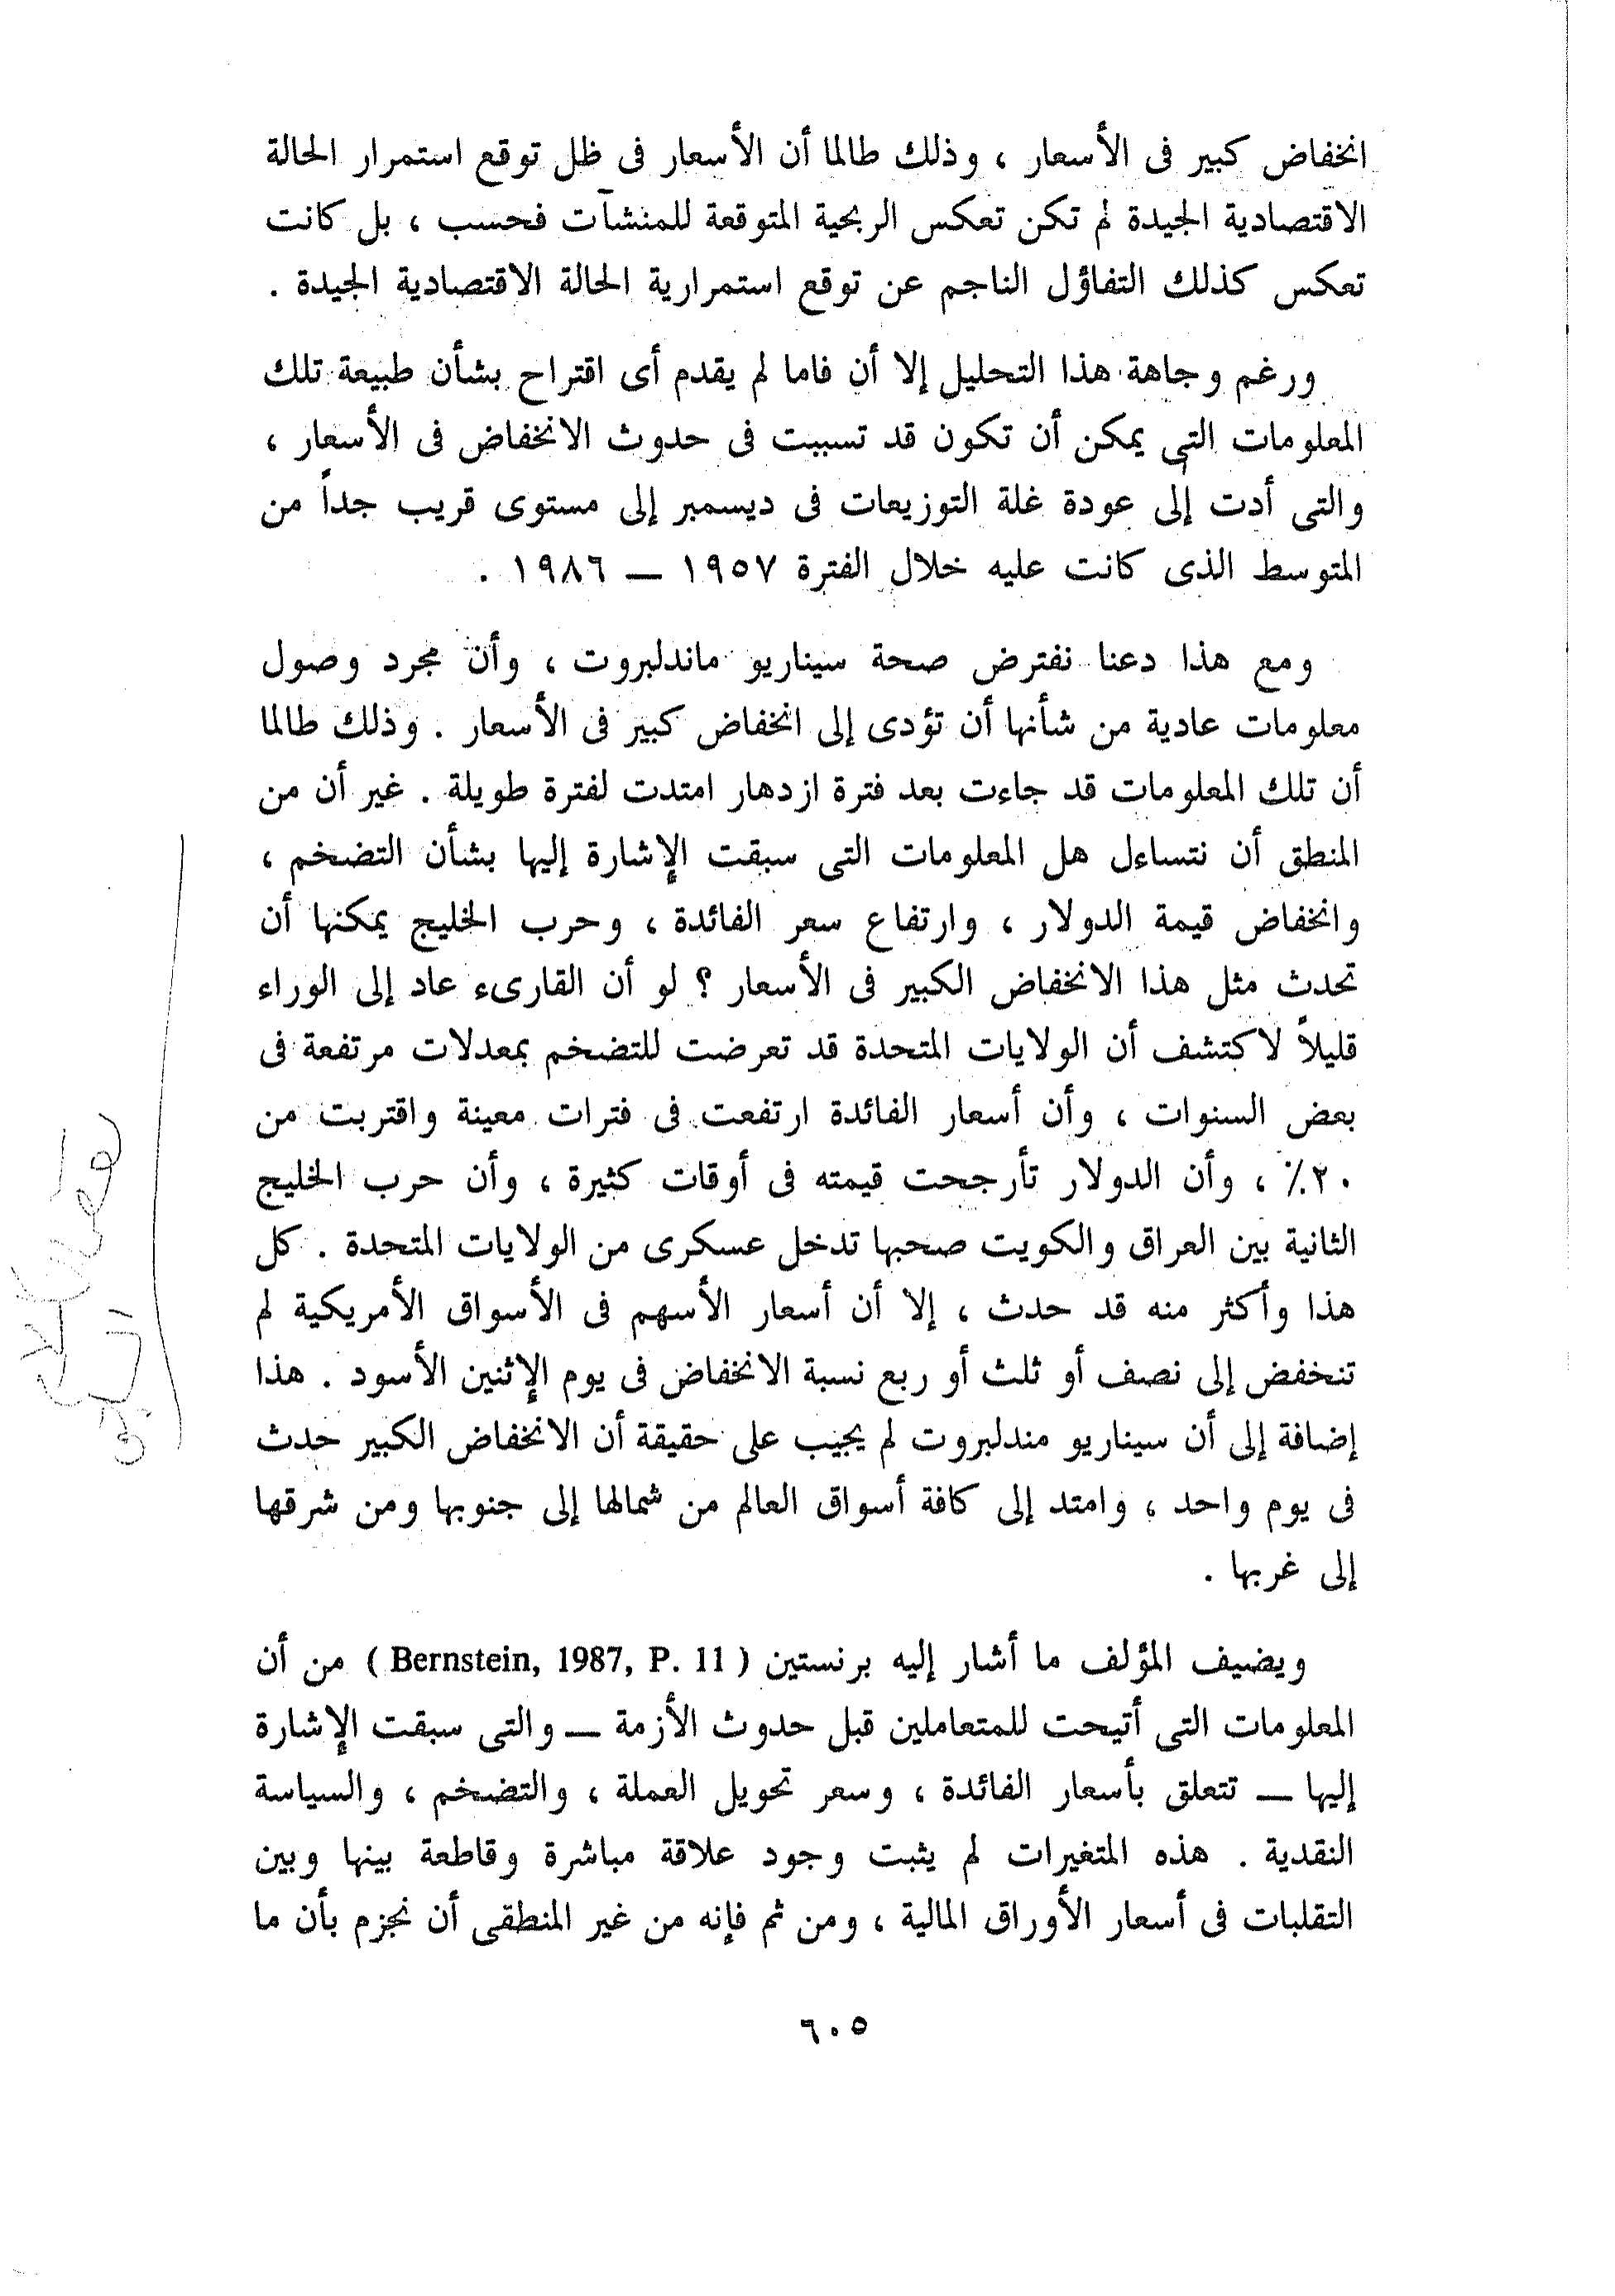 انخفاض كبير فى الأسعار ، وذلك طالما أن الأسعار فى ظل توقع استمرار الحالة
الاقتصادية الجيدة لم تكن تعكس الربحية المتوقعة للمنشآت فحسب ، بل كانت
تعكس كذلك التفاؤل الناجم عن توقع استمرارية الحالة الاقتصادية الجيدة .
ورغم وجاهة هذا التحليل إلا أن فاما لم يقدم أى اقتراح بشأن طبيعة تلك
المعلومات التى يمكن أن تكون قد تسببت فى حدوث الانخفاض فى الأسعار ،
والتى أدت إلى عودة غلة التوزيعات فى ديسمبر إلى مستوى قريب جداً من
المتوسط الذى كانت عليه خلال الفترة ١٩٥٧ — ١٩٨٦ .
ومع هذا دعنا نفترض صحة سيناريو ماندلبروت ، وأن مجرد وصول
معلومات عادية من شأنها أن تؤدى إلى انخفاض كبير فى الأسعار . وذلك طالما
أن تلك المعلومات قد جاءت بعد فترة ازدهار امتدت لفترة طويلة . غير أن من
المنطق أن نتساءل هل المعلومات التى سبقت الإشارة إليها بشأن التضخم ،
وانخفاض قيمة الدولار ، وارتفاع سعر الفائدة ، وحرب الخليج يمكنها أن
تحدث مثل هذا الانخفاض الكبير فى الأسعار ؟ لو أن القارىء عاد إلى الوراء
قليلاً لاكتشف أن الولايات المتحدة قد تعرضت للتضخم بمعدلات مرتفعة فى
بعض السنوات ، وأن أسعار الفائدة ارتفعت فى فترات معينة واقتربت من
٢٠٪ ، وأن الدولار تأرجحت قيمته فى أوقات كثيرة ، وأن حرب الخليج
الثانية بين العراق والكويت صحبها تدخل عسكرى من الولايات المتحدة . كل
هذا وأكثر منه قد حدث ، إلا أن أسعار الأسهم فى الأسواق الأمريكية لم
تنخفض إلى نصف أو ثلث أو ربع نسبة الانخفاض فى يوم الإثنين الأسود . هذا
إضافة إلى أن سيناريو مندلبروت لم يجيب على حقيقة أن الانخفاض الكبير حدث
فى يوم واحد ، وامتد إلى كافة أسواق العالم من شمالها إلى جنوبها ومن شرقها
إلى غربها .
ويضيف المؤلف ما أشار إليه برنستين ( Bernstein, 1987, P. 11 ) من أن
المعلومات التى أتيحت للمتعاملين قبل حدوث الأزمة — والتى سبقت الإشارة
إليها — تتعلق بأسعار الفائدة ، وسعر تحويل العملة ، والتضخم ، والسياسة
النقدية . هذه المتغيرات لم يثبت وجود علاقة مباشرة وقاطعة بينها وبين
التقلبات فى أسعار الأوراق المالية ، ومن ثم فإنه من غير المنطقى أن نجزم بأن ما
٦٠٥